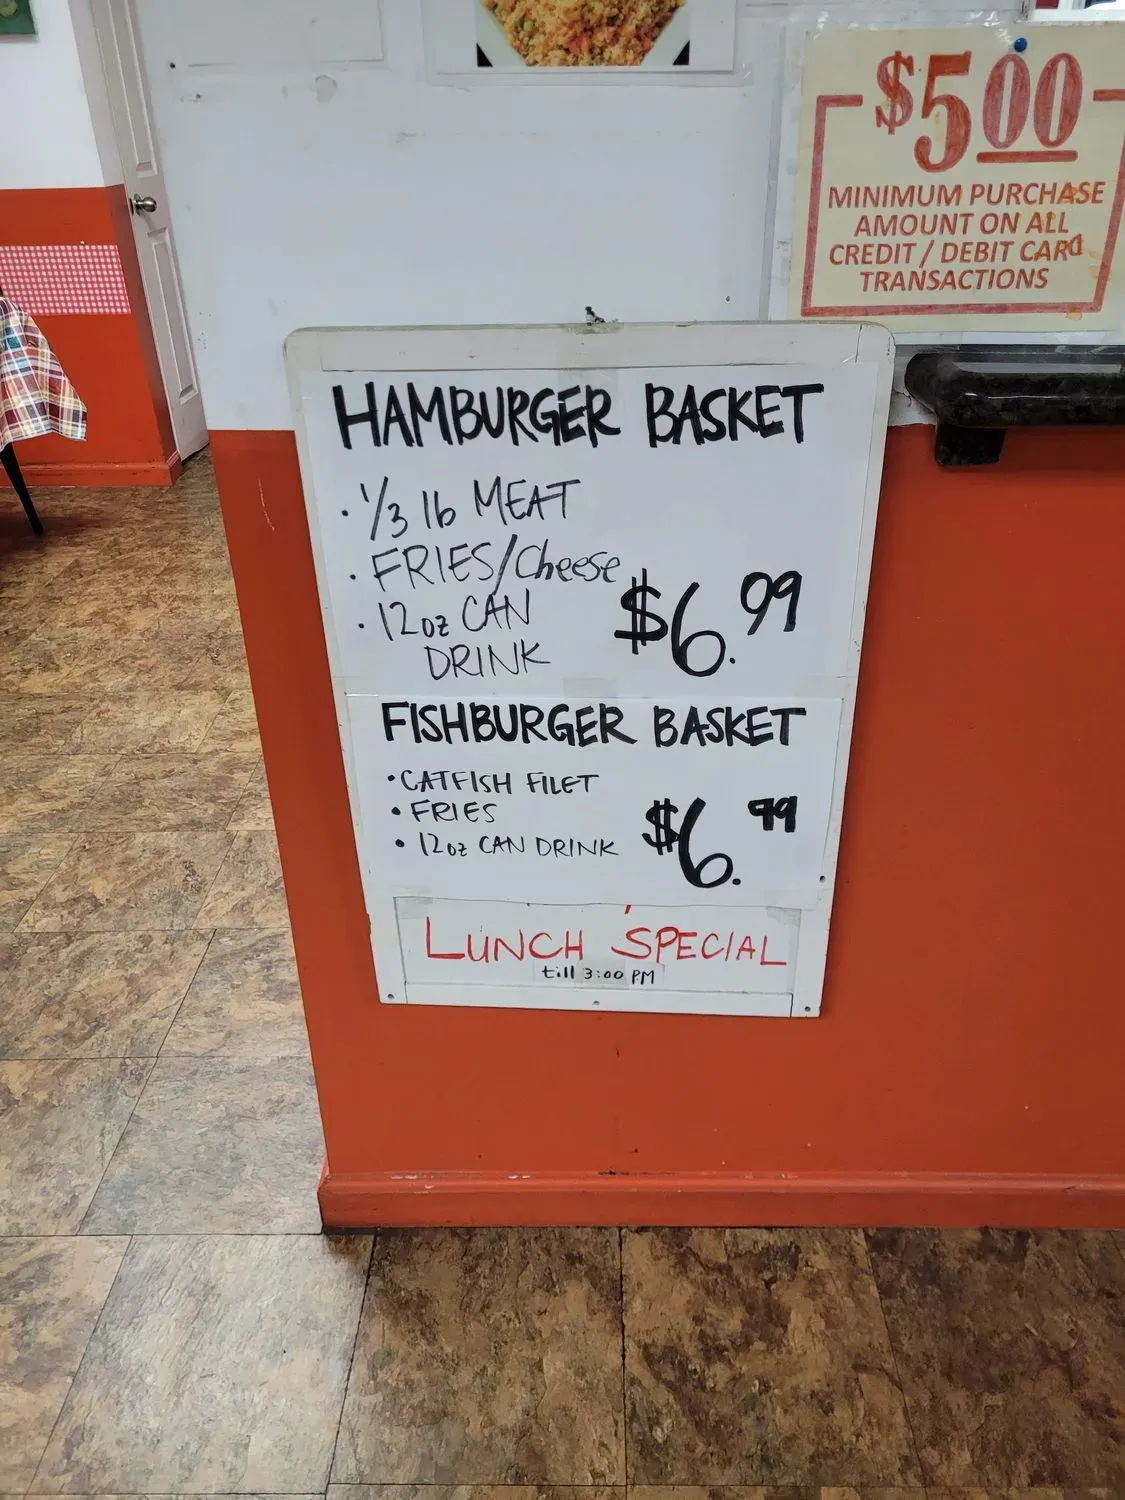 $5.00
MINIMUM PURCHASE
AMOUNT ON ALL
CREDIT / DEBIT CARD
TRANSACTIONS
HAMBURGER BASKET
• 1/3 lb MEAT
• FRIES/Cheese
• 12oz CAN
DRINK
$6.99
FISHBURGER BASKET
• CATFISH FILET
• FRIES
• 12oz CAN DRINK
$6.99
LUNCH SPECIAL
till 3:00 PM